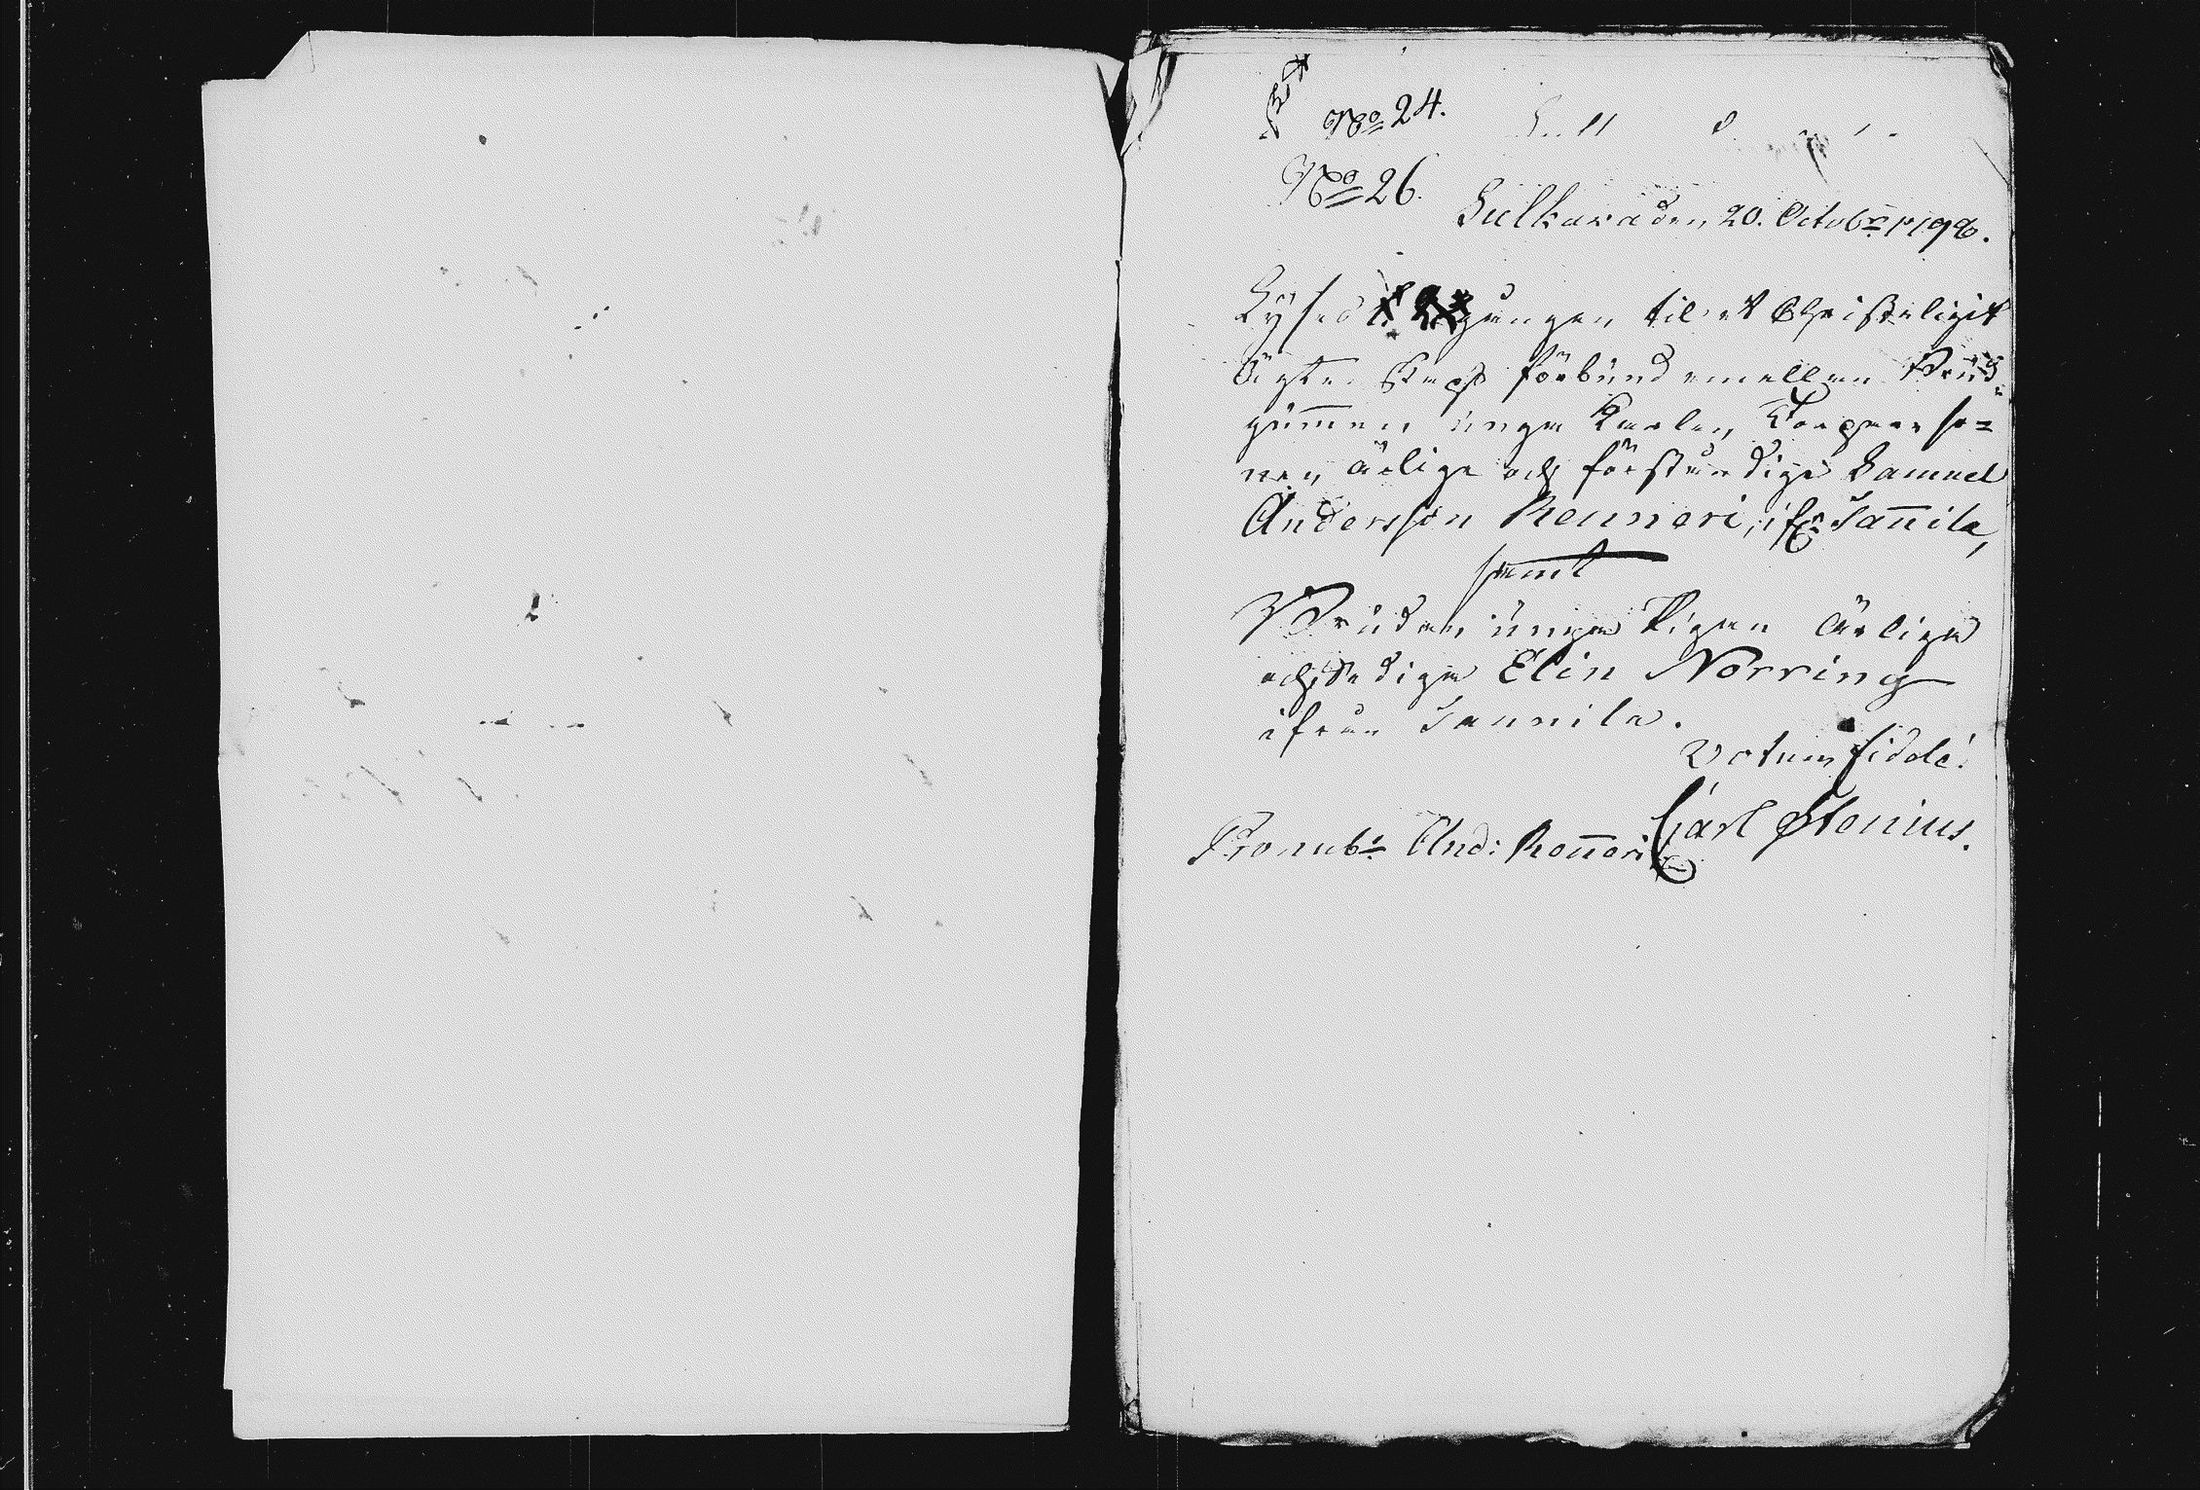 No 24.
No 26.
Sulkava den 20. Octobr 1798.
Lyses gången til et Christeligit
Ägtenskaps förbund emellan Brud-
gummen unga Karlen, Torpareso=
nen, ärlige och förståndige Samuel
Andersson Renneri, ifr Iañila,
samt
Bruden unga Pigan ärliga
och sediga Elin Norring
ifrån Iannila.
Votum fidele!
Carl Stenius.
Pronubs And: Reñeri